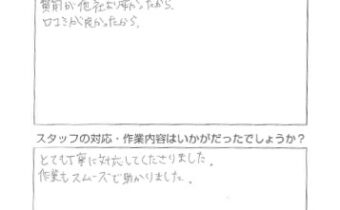 費用が他社より安かったから、
口コミが良かったから。
スタッフの対応・作業内容はいかがだったでしょうか？
とても丁寧に対応してくださりました。
作業もスムーズで助かりました。